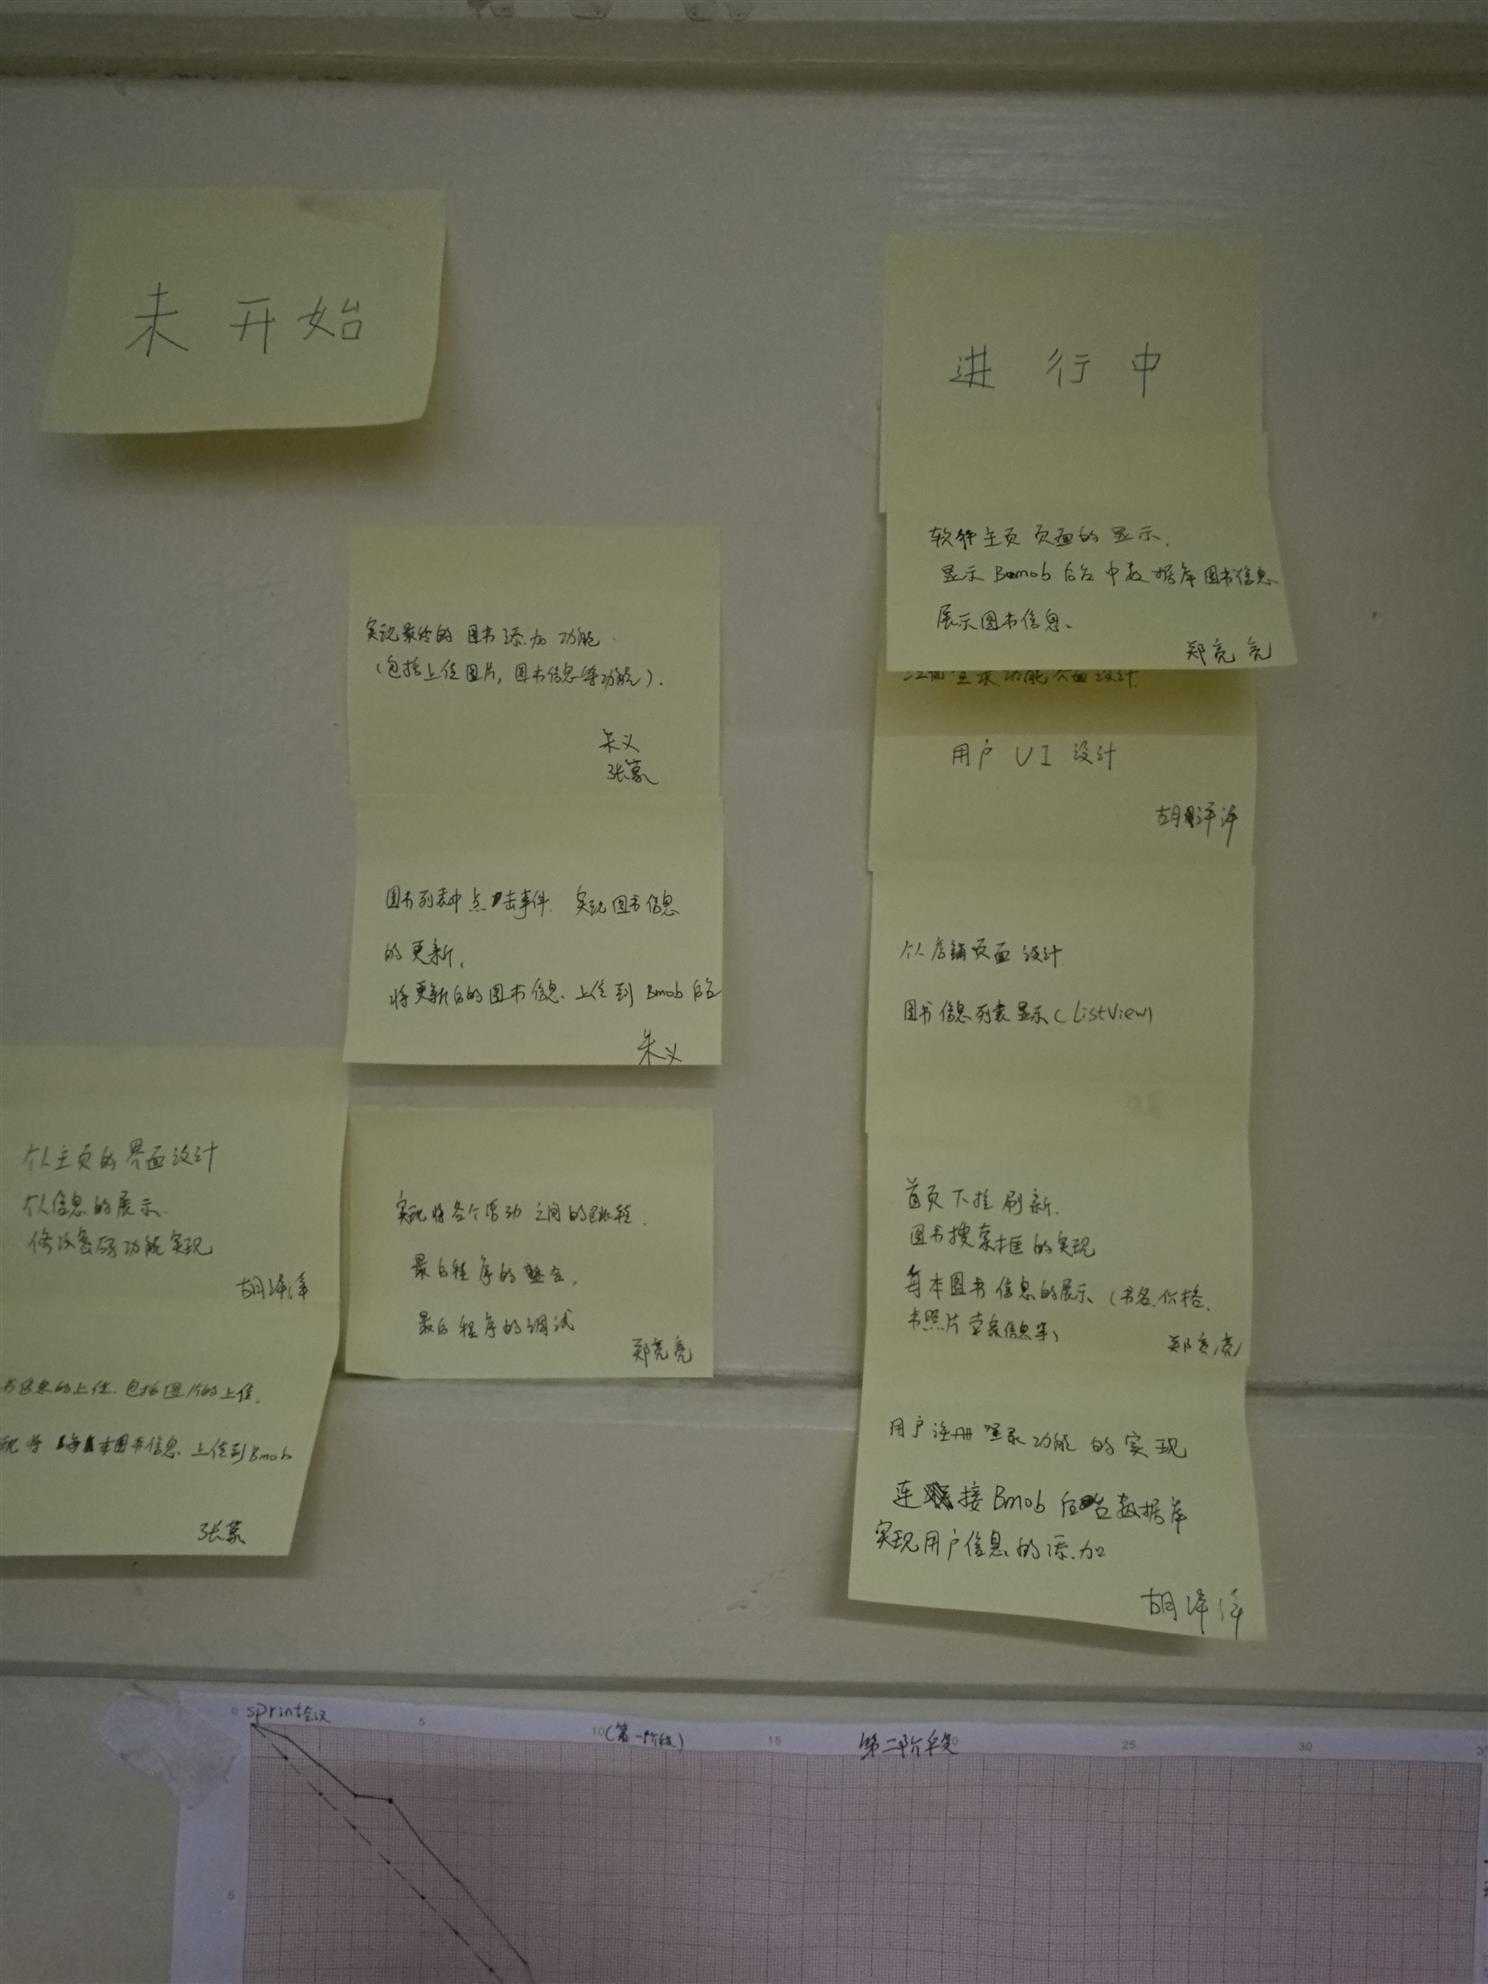 未开始
实现最终的图书添加功能
(包括上传图片,图书信息等功能).
朱义
张篆
图书列表中点击事件. 实现图书信息
的更新.
将更新后的图书信息上传到Bmob后台
朱义
个人主页的界面设计
个人信息的展示.
修改密码功能实现
胡泽泽
书信息的上传.包括图片的上传.
现将每本图书信息上传到Bmob
张篆
实现将各个活动之间的
最后程序的整合.
最后程序的调试
郑亮亮
进行中
软件主页页面的显示.
显示Bmob后台中数据库图书信息
展示图书信息.
郑亮亮
注册登录功能界面设计
用户UI设计
胡泽泽
个人店铺页面设计
图书信息列表显示(ListView)
首页下拉刷新.
图书搜索框的实现
每本图书信息的展示(书名.价格.
书照片卖家信息等)
郑亮亮
用户注册登录功能的实现
连接Bmob后台数据库
实现用户信息的添加
胡泽泽
0 sprint会议 5 10(第一阶段) 15 第二阶段 20 25 30
5